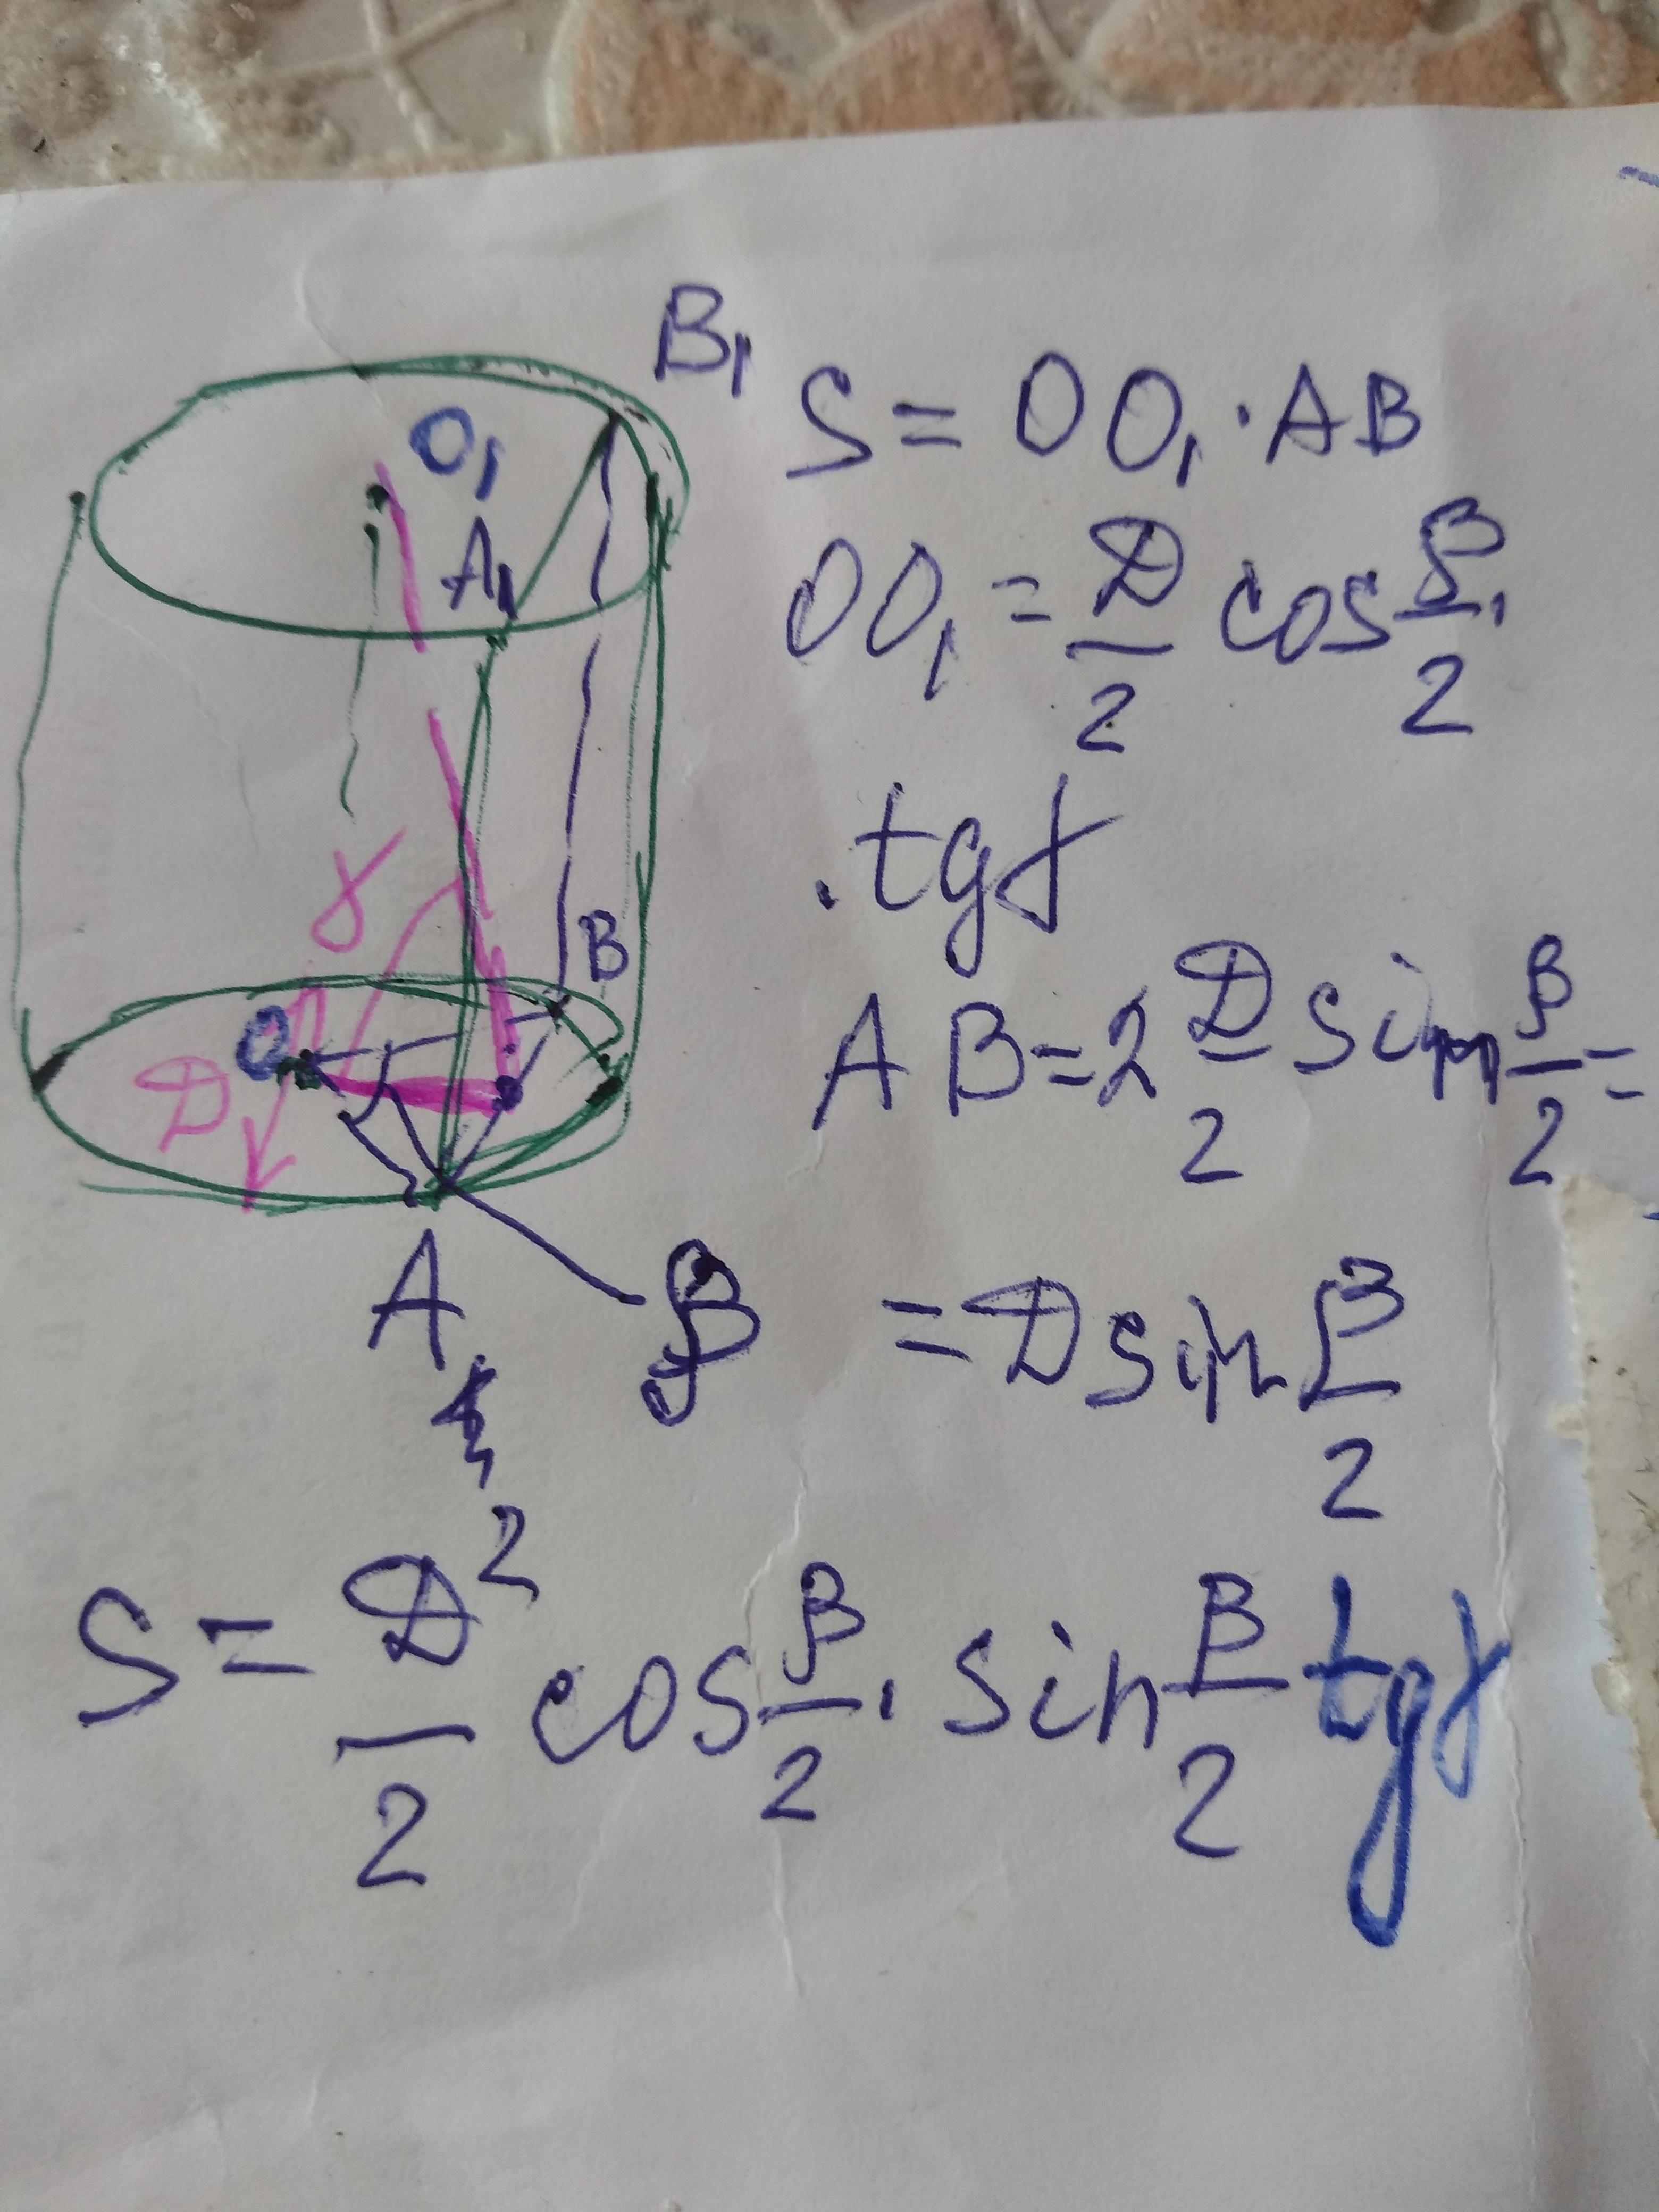 B₁
O₁
A₁
S = OO₁ · AB
OO₁ = D/2 cos β/2 ·
· tg γ
γ
B
O
D
AB = 2 D/2 sin β/2 =
A
β
= D sin β/2
S = D²/2 cos β/2 · sin β/2 tg γ